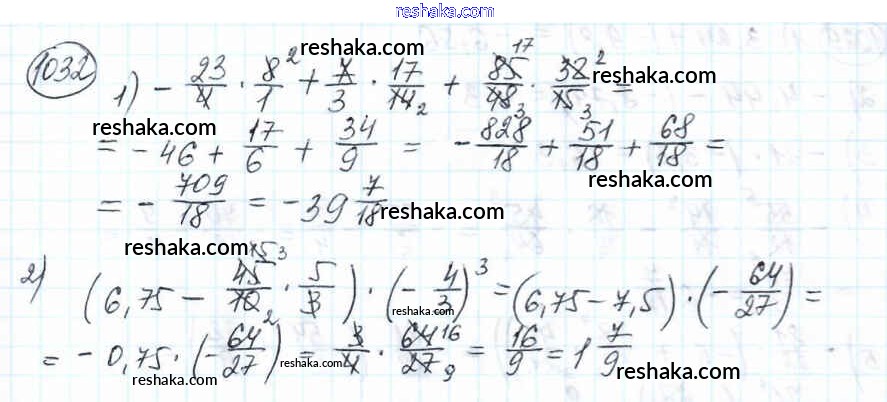 reshaka.com
1032 reshaka.com
1) - 23/4 · 8/1 2 + 7/3 · 17/14 2 + 85 17/48 3 · 32 2/15 3 = reshaka.com
reshaka.com
= - 46 + 17/6 + 34/9 = - 828/18 + 51/18 + 68/18 = reshaka.com
= - 709/18 = - 39 7/18 reshaka.com
reshaka.com
2) (6,75 - 45 15 3/10 2 · 5/3) · (- 4/3)^3 = (6,75 - 7,5) · (- 64/27) = reshaka.com reshaka.com
= - 0,75 · (- 64/27) = 3/4 · 64 16/27 9 = 16/9 = 1 7/9 reshaka.com
reshaka.com reshaka.com reshaka.com